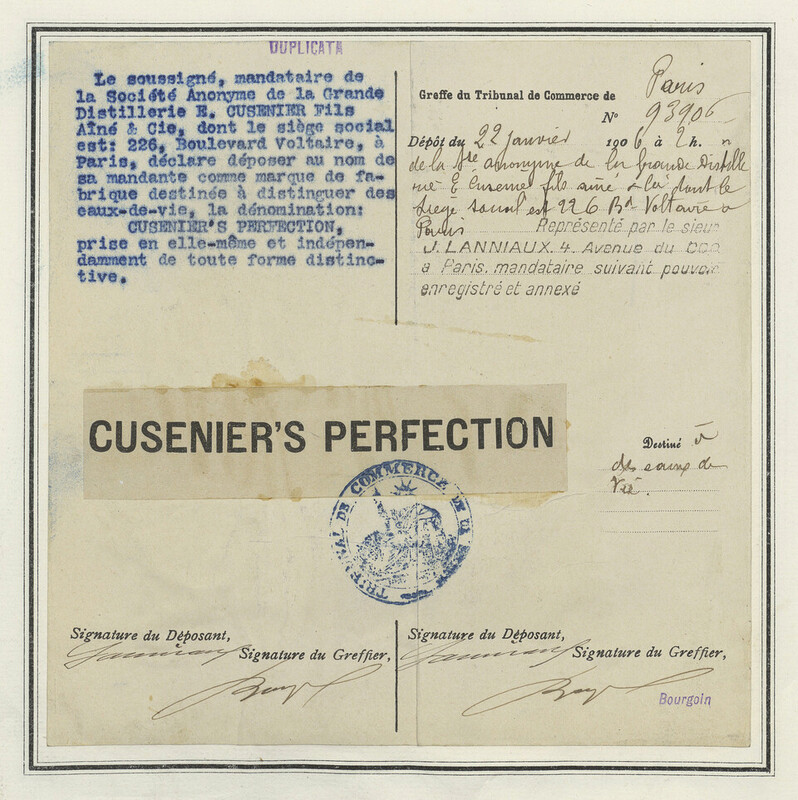 DUPLICATA
Le soussigné, mandataire de
la Société Anonyme de la Grande
Distillerie E. CUSENIER Fils
Aîné & Cie, dont le siège social
est: 226, Boulevard Voltaire, à
Paris, déclare déposer au nom de
sa mandante comme marque de fa-
brique destinée à distinguer des
eaux-de-vie, la dénomination:
CUSENIER'S PERFECTION,
prise en elle-même et indépen-
damment de toute forme distinc-
tive.
Greffe du Tribunal de Commerce de Paris
N° 93906
Dépôt du 22 janvier 1906 à 2 h.
de la Sté anonyme de la Grande Distille
rie E. Cusenier fils ainé & Cie dont le
siège social est 226 Bd Voltaire à
Paris Représenté par le sieur
J. LANNIAUX. 4. Avenue du COQ
à Paris. mandataire suivant pouvoir
enregistré et annexé
CUSENIER'S PERFECTION
Destiné à
des eaux de
vie.
TRIBUNAL DE COMMERCE DE LA SEINE
Signature du Déposant,
Signature du Greffier,
Signature du Déposant,
Signature du Greffier,
Bourgoin